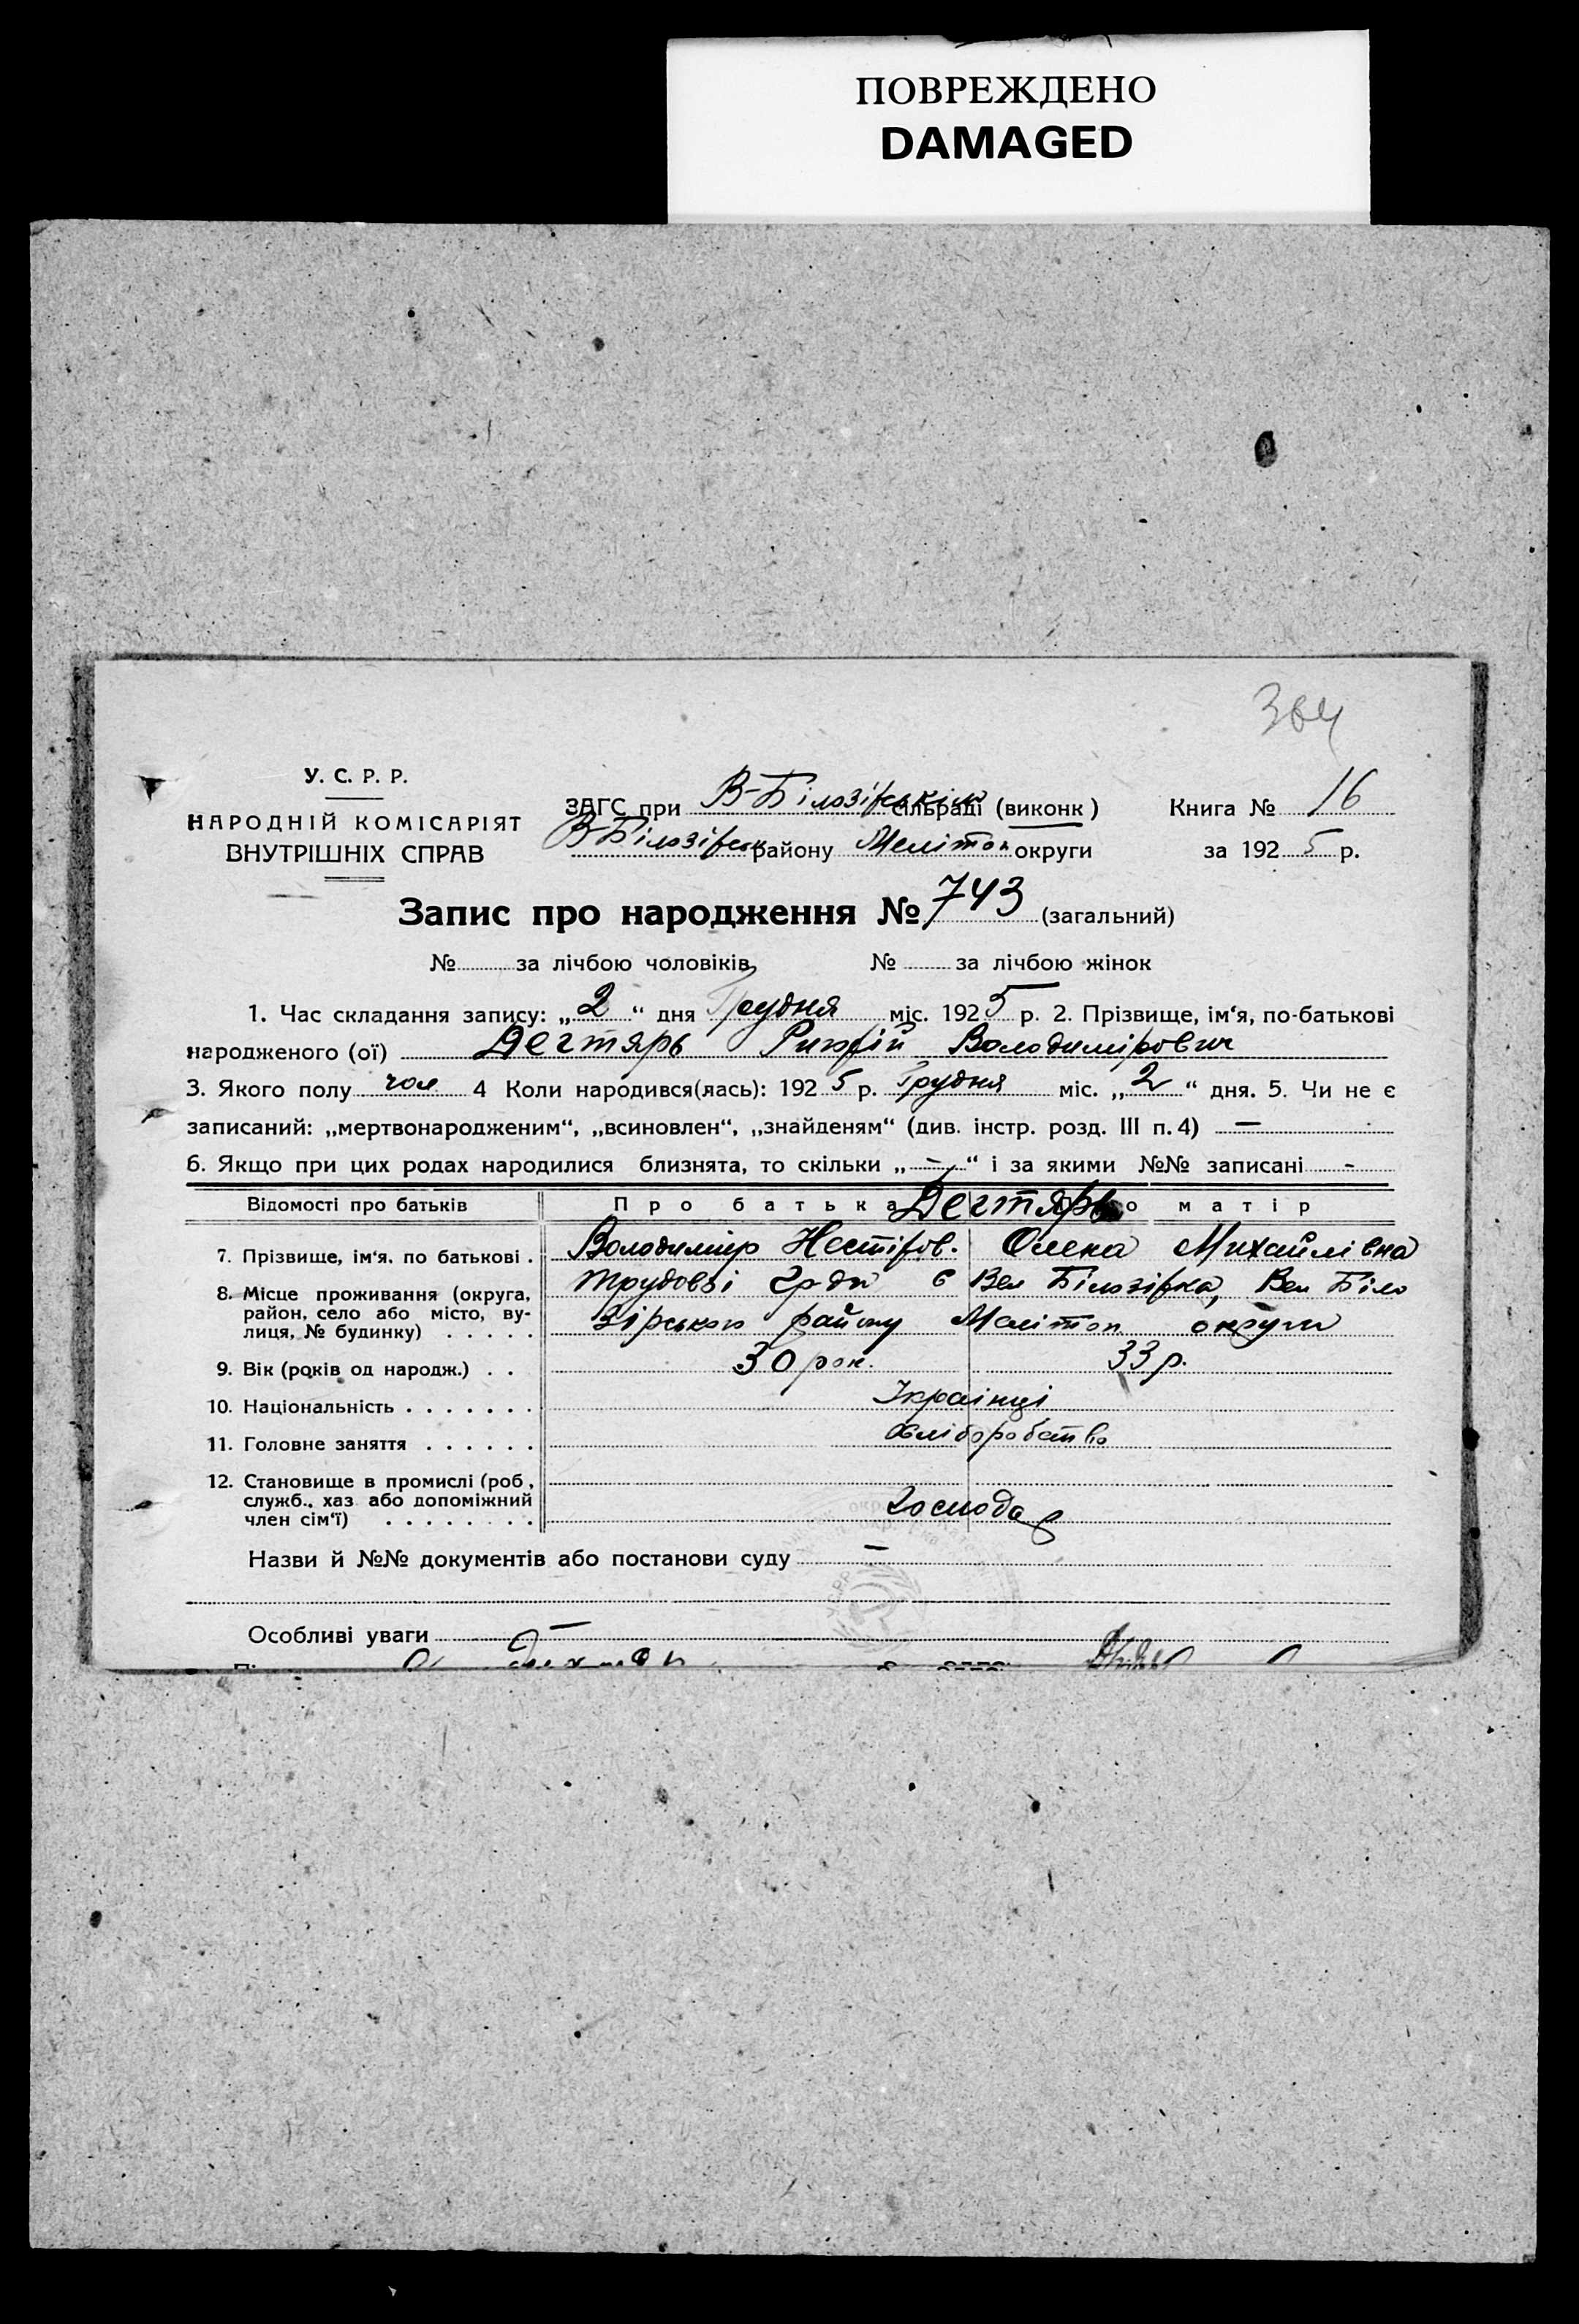 ПОВРЕЖДЕНО
DAMAGED
364
У. С. Р. Р.
НАРОДНІЙ КОМІСАРІЯТ
ВНУТРІШНІХ СПРАВ
ЗАГС при В-Білозірськім сільраді (виконк)
В-Білозірськ району Мелітоп округи
Книга № 16
за 1925 р.
Запис про народження № 743 (загальний)
№ за лічбою чоловіків, № за лічбою жінок
1. Час складання запису: „2“ дня Грудня міс. 1925 р. 2. Прізвище, ім‘я, по-батькові
народженого (ої) Дегтярь Володимірович
3. Якого полу чол 4 Коли народився(лась): 1925 р. Грудня міс. „2“ дня. 5. Чи не є
записаний: „мертвонародженим“, „всиновлен“, „знайденям“ (див. інстр. розд. III п. 4) —
6. Якщо при цих родах народилися близнята, то скільки „—“ і за якими №№ записані -
Відомості про батьків Про батька Дегтярь Про матір
7. Прізвище, ім‘я, по батькові . Володимір Нестіров. Олена Михайлівна
8. Місце проживання (округа, район, село або місто, вулиця, № будинку) . . . . . Трудовві с Вел Білозірка, Вел Біло
зірського району Мелітоп округи
9. Вік (років од народж.) . . 30 рок. 33 р.
10. Національність . . . . . . . Українці
11. Головне заняття . . . . . . хліборобство
12. Становище в промислі (роб, служб., хаз або допоміжний член сім‘ї) . . . . . . . . Господар
Назви й №№ документів або постанови суду —
Особливі уваги —